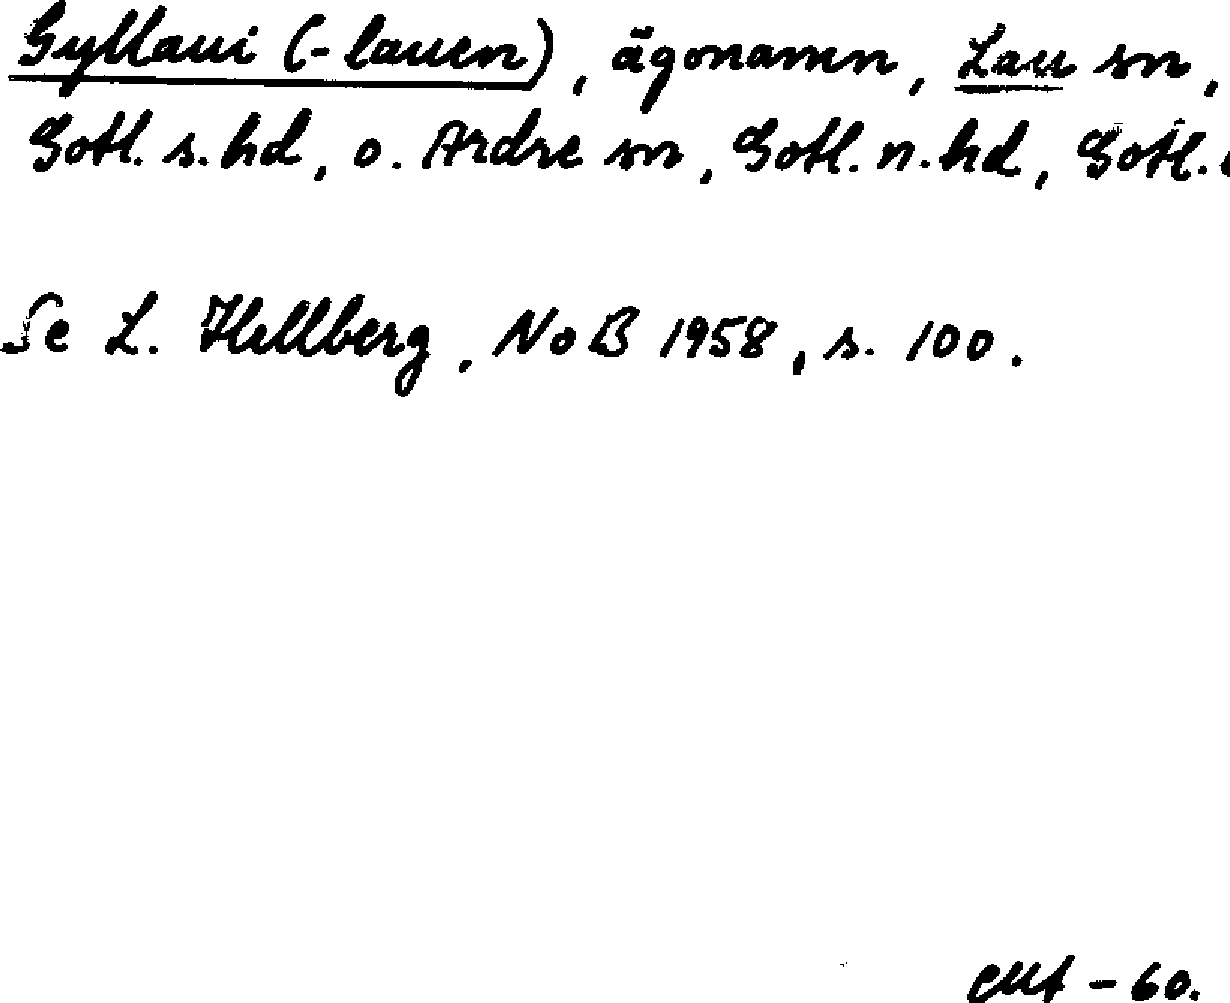 Gyllaui (-lauen), ägonamn, Lau sn,
Gotl. s. hd, o. Ardre sn, Gotl. n. hd, Gotl.
Se L. Hellberg, NoB 1958, s. 100.
- 60.